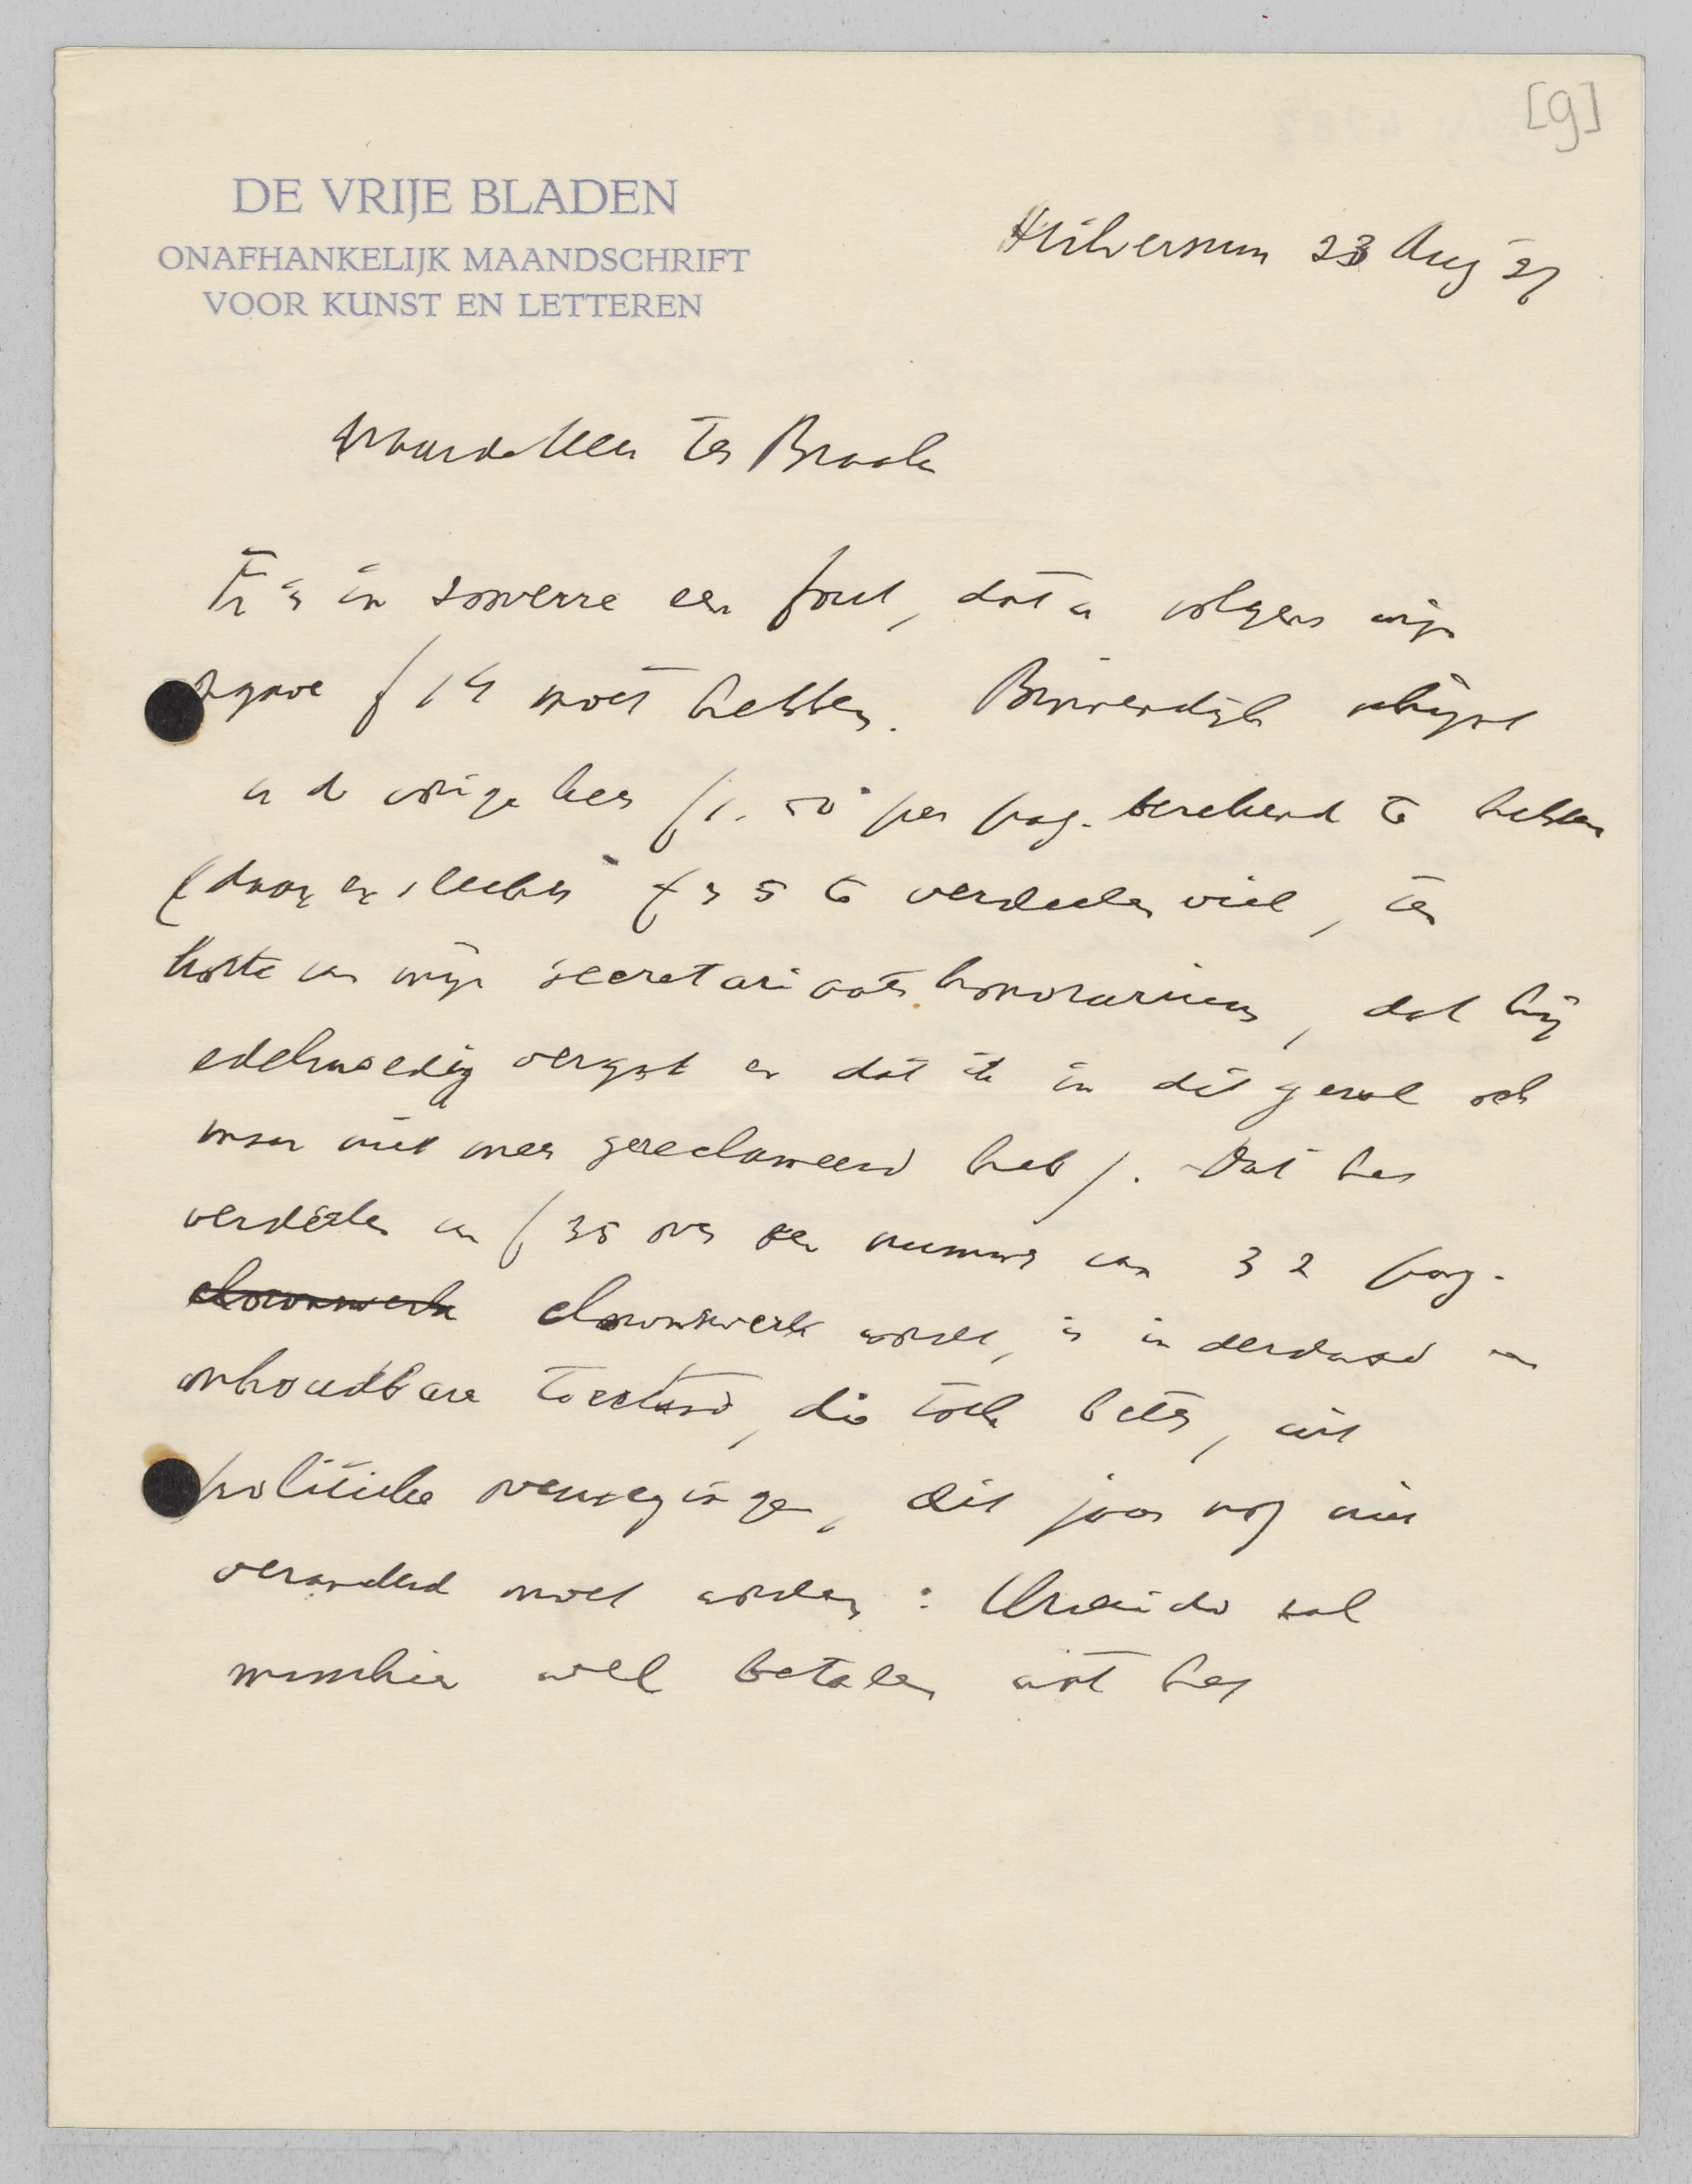 [9]
DE VRIJE BLADEN
ONAFHANKELIJK MAANDSCHRIFT
VOOR KUNST EN LETTEREN
Hilversum 23 Aug 27
Waarde Heer Ter Braak
Er is in zooverre een fout, dat u volgens mijn
opgave f 14 moet hebben. Binnendijk schijnt
u de vorige keer f 1.50 per pag. berekend te hebben
(daar er slechts f 35 te verdeelen viel, ten
koste van mijn secretariaatshonorarium, dat hij
edelmoedig vergat en dat ik in dit geval ook
maar niet meer gereclameerd heb). Dat het
verdeelen van f 35 over een nummer van 32 pag.
clownwerk clownswerk wordt, is inderdaad een
onhoudbare toestand, die toch beter, uit
politieke overwegingen, dit jaar nog niet
veranderd moet worden: zal
misschien wel betalen wat het